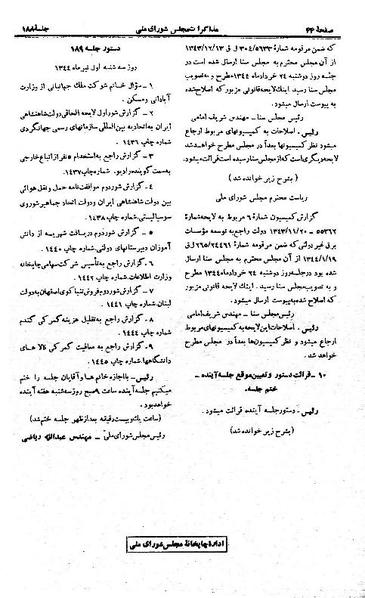 صفحهٔ ۴۴
مذاکرات مجلس شورای ملی
جلسهٔ ۱۸۸
که ضمن مرقومه شمارهٔ ۳۰۴/۵۶۳۳ ل ق ۱۳۴۳/۱۲/۱۳
از آن مجلس محترم به مجلس سنا ارسال شده است در
جلسه روز دوشنبه ۲۴ خردادماه ۱۳۴۴ مطرح و به تصویب
رسید. اینک لایحهٔ قانونی مزبور که اصلاح شده است
به پیوست ارسال میشود.
رئیس مجلس سنا - مهندس شریف امامی
رئیس- اصلاحات به کمیسیونهای مربوط ارجاع
میشود نظر کمیسیونها بعداً در مجلس مطرح خواهد شد
لایحه دیگری است که از مجلس سنا رسیده است قرائت میشود.
(بشرح زیر خوانده شد)
ریاست محترم مجلس شورای ملی
گزارش کمیسیون شمارهٔ ۶ مربوط به لایحهٔ شمارهٔ
۵۵۳۶۲ - ۱۳۴۳/۱۱/۲۰ راجع به توسعه مؤسسات
برق غیر دولتی که ضمن مرقومهٔ شمارهٔ ۲۶۵/۲۴۴۹۱ ل ق
۱۳۴۴/۱/۱۹ از آن مجلس محترم به مجلس سنا ارسال
شده بود در جلسه روز دوشنبه ۲۴ خرداد ماه ۱۳۴۴ مطرح
و به تصویب مجلس سنا رسید. اینک لایحهٔ قانونی مزبور
که اصلاح شده به پیوست ارسال میشود.
رئیس مجلس سنا - مهندس شریف امامی
رئیس- اصلاحات این لایحه به کمیسیونهای مربوط
ارجاع میشود و نظر کمیسیونها بعداً در مجلس مطرح
خواهد شد.
۱۰ - قرائت دستور و تعیین موقع جلسه آینده -
ختم جلسه.
رئیس- دستور جلسه آینده قرائت میشود.
(بشرح زیر خوانده شد)
دستور جلسه ۱۸۹
روز سه شنبه اول تیرماه ۱۳۴۴
۱- سؤال خانم شوکت ملک جهانبانی از وزارت
آبادانی و مسکن.
۲- گزارش شور اول لایحه الحاق دولت شاهنشاهی
ایران به اتحادیه بین المللی سازمانهای رسمی جهانگردی
شمارهٔ چاپ ۱۴۳۶.
۳- گزارش راجع به استخدام ۵ نفر اتباع خارجی
به سمت گوینده رادیو. شمارهٔ چاپ ۱۴۳۷.
۴- گزارش شور دوم موافقت نامه حمل و نقل هوائی
بین دولت شاهنشاهی ایران و دولت اتحاد جماهیر شوروی
سوسیالیستی. شمارهٔ چاپ ۱۴۳۸.
۵- گزارش شور دوم دریافت شهریه از دانش
آموزان دبیرستانهای دولتی. شمارهٔ چاپ ۱۴۴۰.
۶- گزارش راجع به تأسیس شرکت سهامی چاپخانه
وزارت اطلاعات شمارهٔ چاپ ۱۴۴۲.
۷- گزارش شور دوم فروش تنباکوی اصفهان به دولت
لبنان. شمارهٔ چاپ ۱۴۴۱.
۸- گزارش راجع به تقلیل هزینه گمرکی گندم
شمارهٔ چاپ ۱۴۴۴.
۹- گزارش راجع به معافیت گمرکی کالاهای
دانشگاهها. شمارهٔ چاپ ۱۴۴۵.
رئیس- با اجازه خانمها و آقایان جلسه را ختم
میکنیم جلسه آینده ساعت ۹ صبح روز سه شنبه هفته آینده
خواهد بود.
(ساعت یک و بیست دقیقه بعد از ظهر جلسه ختم شد)
رئیس مجلس شورای ملی - مهندس عبدالله ریاضی
اداره چاپخانه مجلس شورای ملی